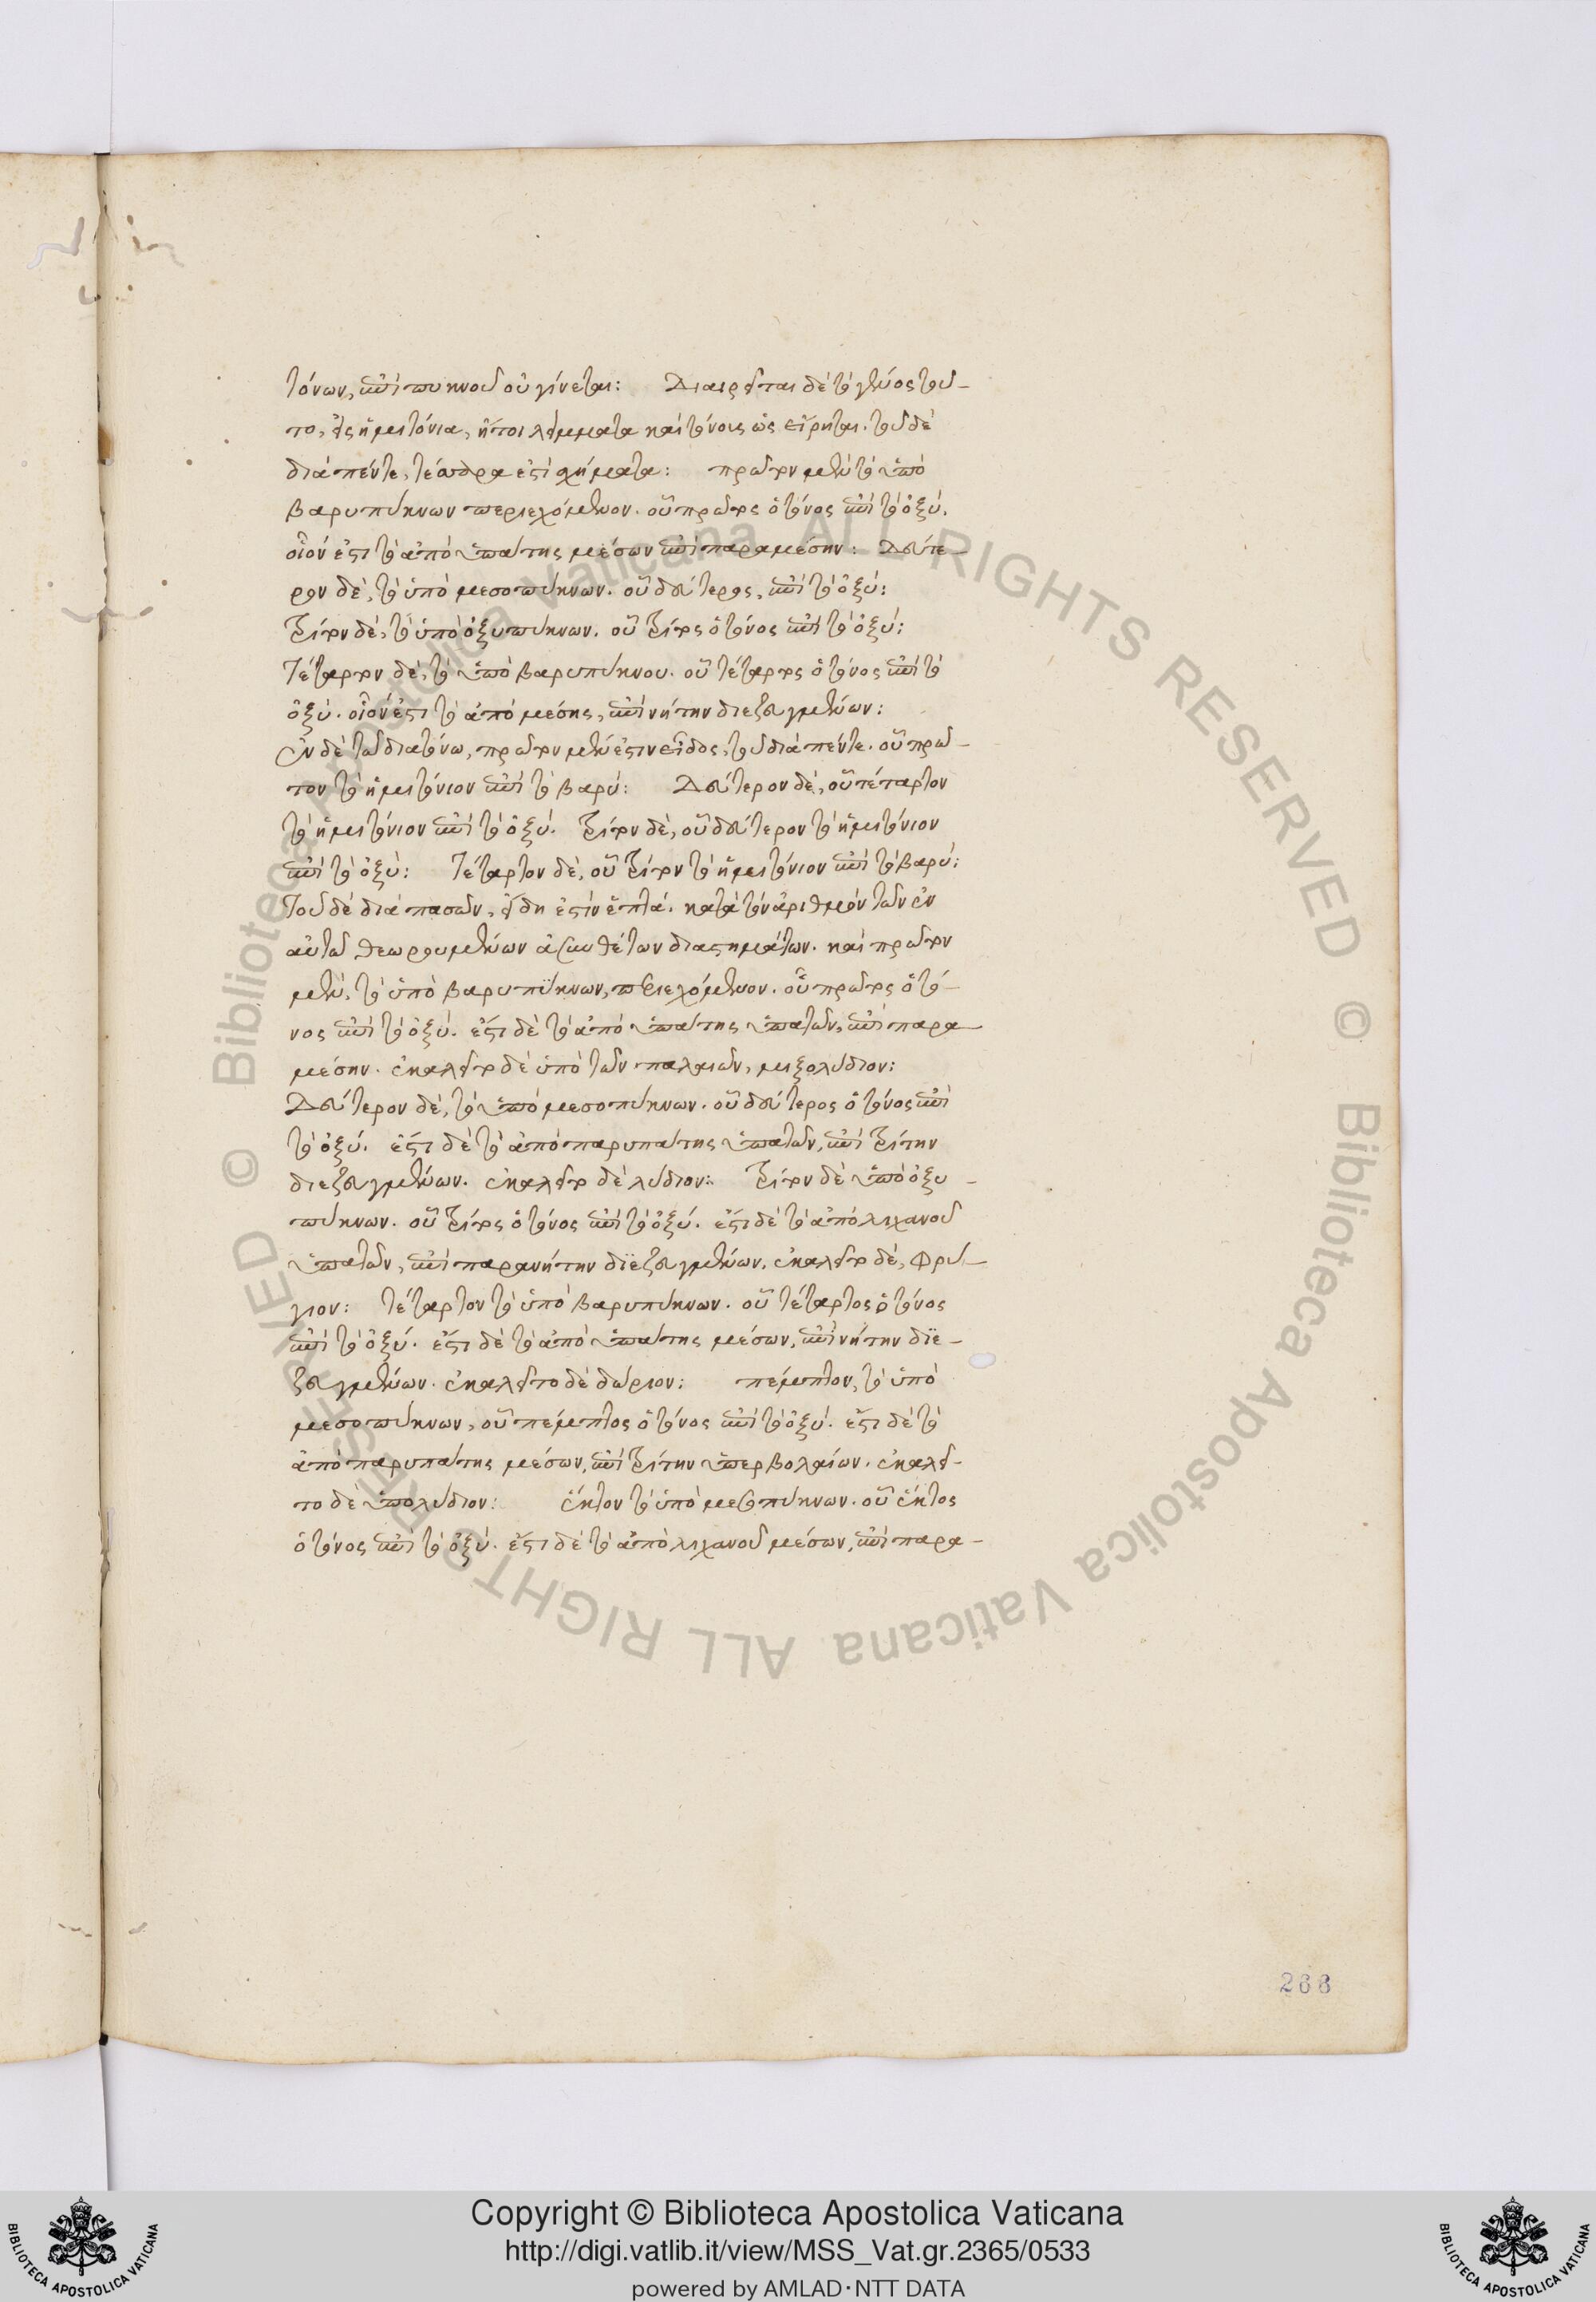 τόνων, ἐπὶ πυκνοῦ οὐ γίνεται: Διαιρεῖται δὲ τὸ γένος τοῦ-
το, εἰς ἡμιτόνια, ἤτοι λείμματα καὶ τόνους ὡς εἴρηται. τοῦ δὲ
διὰ πέντε, τέσσαρα ἐστὶ σχήματα: πρῶτον μὲν τὸ ὑπὸ
βαρυπύκνων περιεχόμενον. οὗ πρῶτος ὁ τόνος ἐπὶ τὸ ὀξύ.
οἷόν ἐστι τὸ ἀπὸ ὑπάτης μέσων ἐπὶ παραμέσην: Δεύτε-
ρον δὲ, τὸ ὑπὸ μεσοπύκνων. οὗ δεύτερος, ἐπὶ τὸ ὀξύ:
Τρίτον δὲ, τὸ ὑπὸ ὀξυπύκνων. οὗ τρίτος ὁ τόνος ἐπὶ τὸ ὀξύ:
Τέταρτον δὲ, τὸ ὑπὸ βαρυπύκνου. οὗ τέταρτος ὁ τόνος ἐπὶ τὸ
ὀξύ. οἷόν ἐστι τὸ ἀπὸ μέσης, ἐπὶ νήτην διεζευγμένων:
ἐν δὲ τῶ διατόνω, πρῶτον μὲν ἐστιν εἶδος, τοῦ διὰ πέντε. οὗ πρῶ-
τον τὸ ἡμιτόνιον ἐπὶ τὸ βαρύ: Δεύτερον δὲ, οὗ τέταρτον
τὸ ἡμιτόνιον ἐπὶ τὸ ὀξύ. Τρίτον δὲ, οὗ δεύτερον τὸ ἡμιτόνιον
ἐπὶ τὸ ὀξύ: Τέταρτον δὲ, οὗ τρίτον τὸ ἡμιτόνιον ἐπὶ τὸ βαρύ:
Τοῦ δὲ διὰ πασῶν, εἴδη ἐστὶν ἑπτά. κατὰ τὸν ἀριθμὸν τῶν ἐν
αὐτῶ θεωρουμένων ἀσυνθέτων διαστημάτων. καὶ πρῶτον
μὲν, τὸ ὑπὸ βαρυπύκνων, περιεχόμενον. οὗ πρῶτος ὁ τό-
νος ἐπὶ τὸ ὀξύ. ἔστι δὲ τὸ ἀπὸ ὑπάτης ὑπατῶν, ἐπὶ παρα-
μέσην. ἐκαλεῖτο δὲ ὑπὸ τῶν παλαιῶν, μιξολύδιον:
Δεύτερον δὲ, τὸ ὑπὸ μεσοπύκνων. οὗ δεύτερος ὁ τόνος ἐπὶ
τὸ ὀξύ. ἔστι δὲ τὸ ἀπὸ παρυπάτης ὑπατῶν, ἐπὶ τρίτην
διεζευγμένων. ἐκαλεῖτο δὲ λύδιον: Τρίτον δὲ ὑπὸ ὀξυ-
πύκνων. οὗ τρίτος ὁ τόνος ἐπὶ τὸ ὀξύ. ἔστι δὲ τὸ ἀπὸ λιχανοῦ
ὑπατῶν, ἐπὶ παρανήτην διεζευγμένων. ἐκαλεῖτο δὲ, φρύ-
γιον: τέταρτον τὸ ὑπὸ βαρυπύκνων. οὗ τέταρτος ὁ τόνος
ἐπὶ τὸ ὀξύ. ἔστι δὲ τὸ ἀπὸ ὑπάτης μέσων, ἐπὶ νήτην διε-
ζευγμένων. ἐκαλεῖτο δὲ δώριον: πέμπτον, τὸ ὑπὸ
μεσοπύκνων, οὗ πέμπτος ὁ τόνος ἐπὶ τὸ ὀξύ. ἔστι δὲ τὸ
ἀπὸ παρυπάτης μέσων, ἐπὶ τρίτην ὑπερβολαίων. ἐκαλεῖ-
το δὲ ὑπολύδιον: ἕκτον τὸ ὑπὸ μεσοπύκνων. οὗ ἕκτος
ὁ τόνος ἐπὶ τὸ ὀξύ. ἔστι δὲ τὸ ἀπὸ λιχανοῦ μέσων, ἐπὶ παρα-
268
© Biblioteca Apostolica Vaticana ALL RIGHTS RESERVED © Biblioteca Apostolica Vaticana ALL RIGHTS RESERVED
Copyright © Biblioteca Apostolica Vaticana
http://digi.vatlib.it/view/MSS_Vat.gr.2365/0533
powered by AMLAD·NTT DATA
BIBLIOTECA APOSTOLICA VATICANA
BIBLIOTECA APOSTOLICA VATICANA